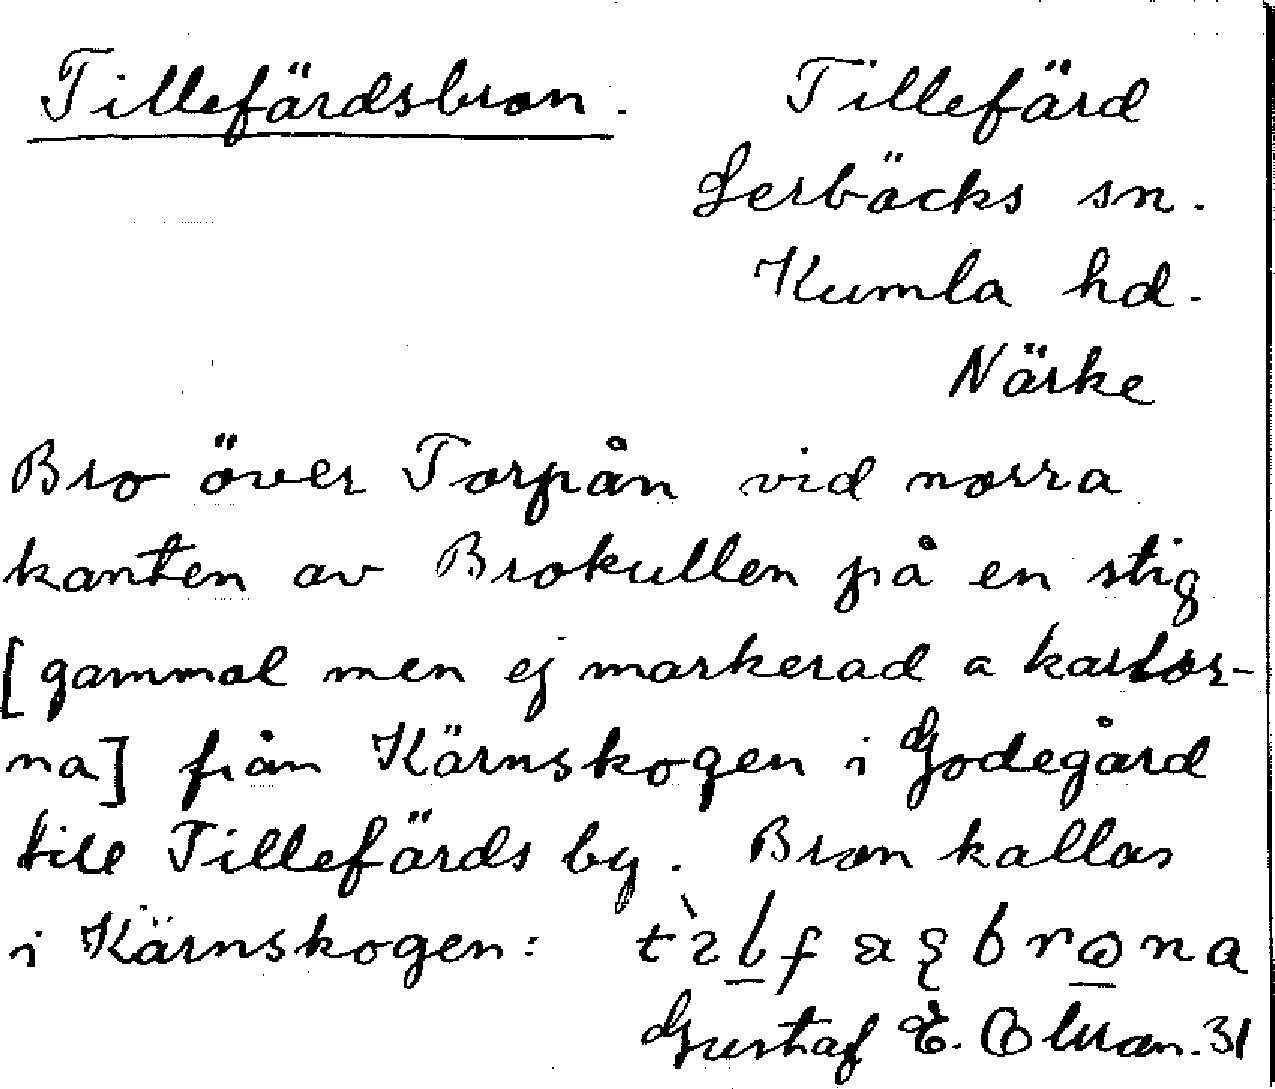 Tillefärdsbron. Tillefärd
Lerbäcks sn.
Kumla hd.
Närke
Bro över Torpån vid norra
kanten av Brokullen på en stig
[gammal men ej markerad a kartor-
na] från Kärnskogen i Godegård
till Tillefärds by. Bron kallas
i Kärnskogen:
Gustaf E. 31